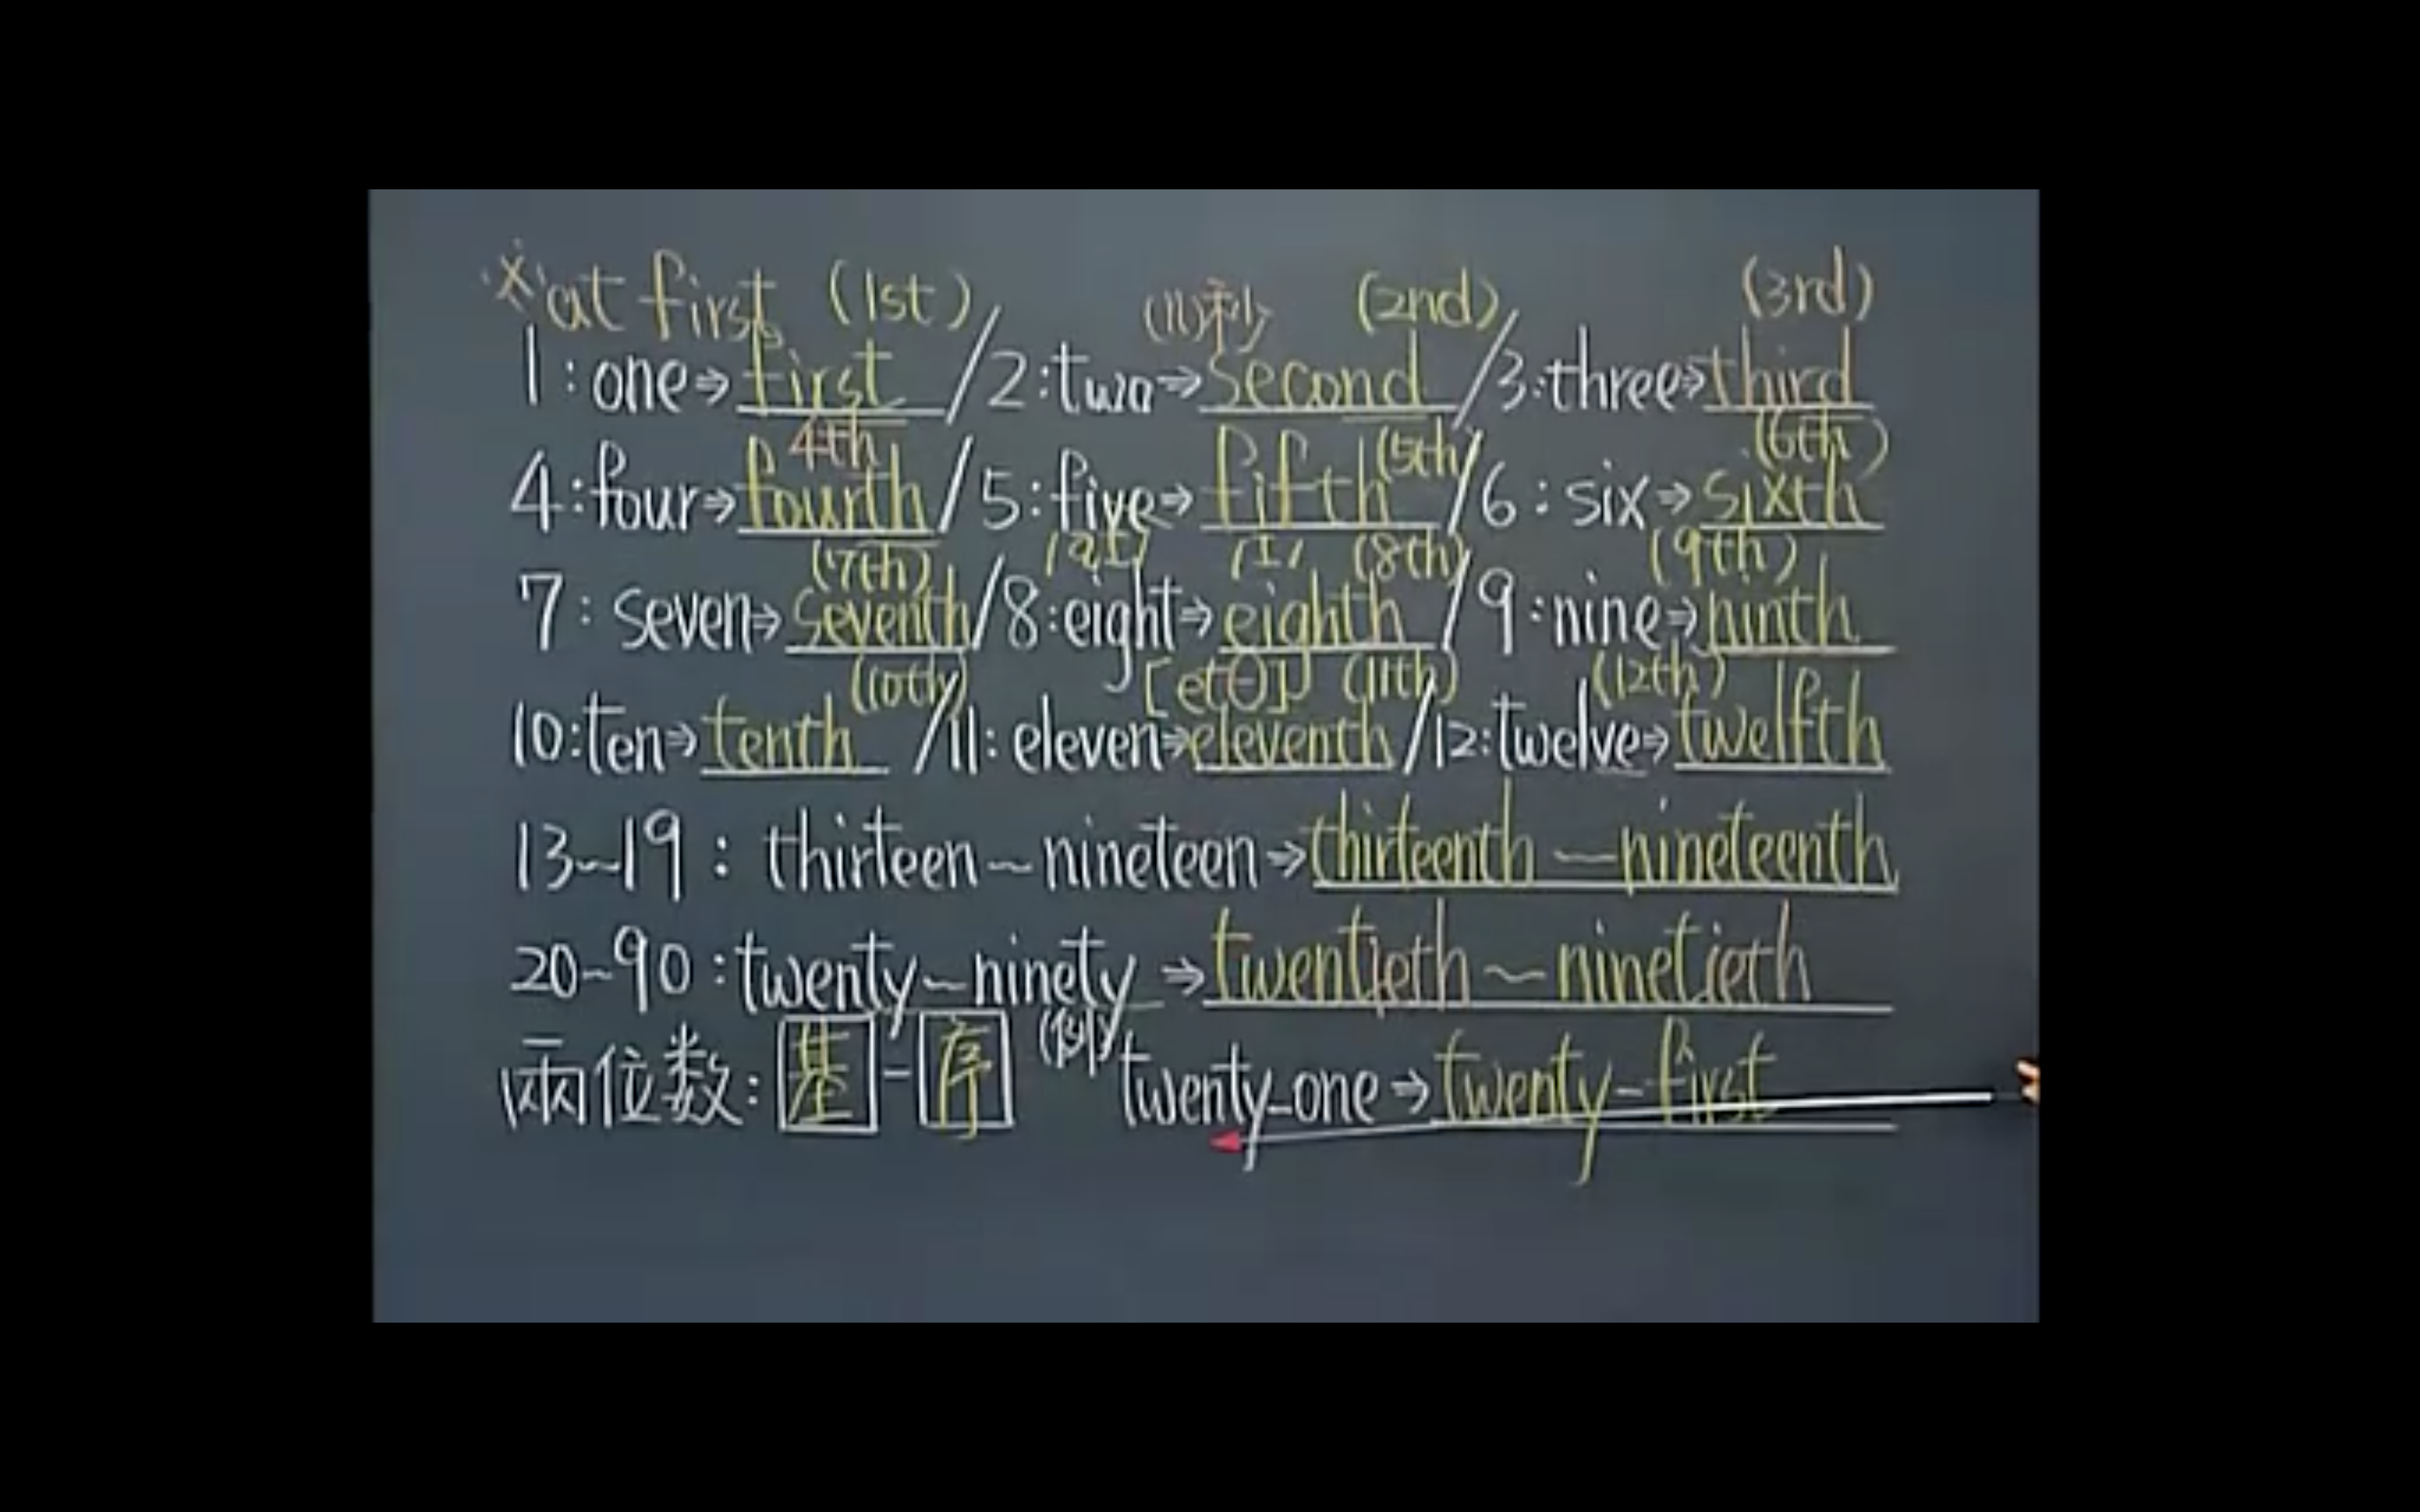 ※at first (1st) (n)秒 (2nd) (3rd)
1:one⇒first/2:two⇒second/3:three⇒third
4th (5th) (6th)
4:four⇒fourth/5:five⇒fifth/6:six⇒sixth
(7th) /aɪ/ /ɪ/ (8th) (9th)
7:seven⇒seventh/8:eight⇒eighth/9:nine⇒ninth
(10th) [etθ] (11th) (12th)
10:ten⇒tenth/11:eleven⇒eleventh/12:twelve⇒twelfth
13~19:thirteen~nineteen⇒thirteenth~nineteenth
20~90:twenty~ninety⇒twentieth~ninetieth
兩位数:基-序 (例)twenty-one⇒twenty-first